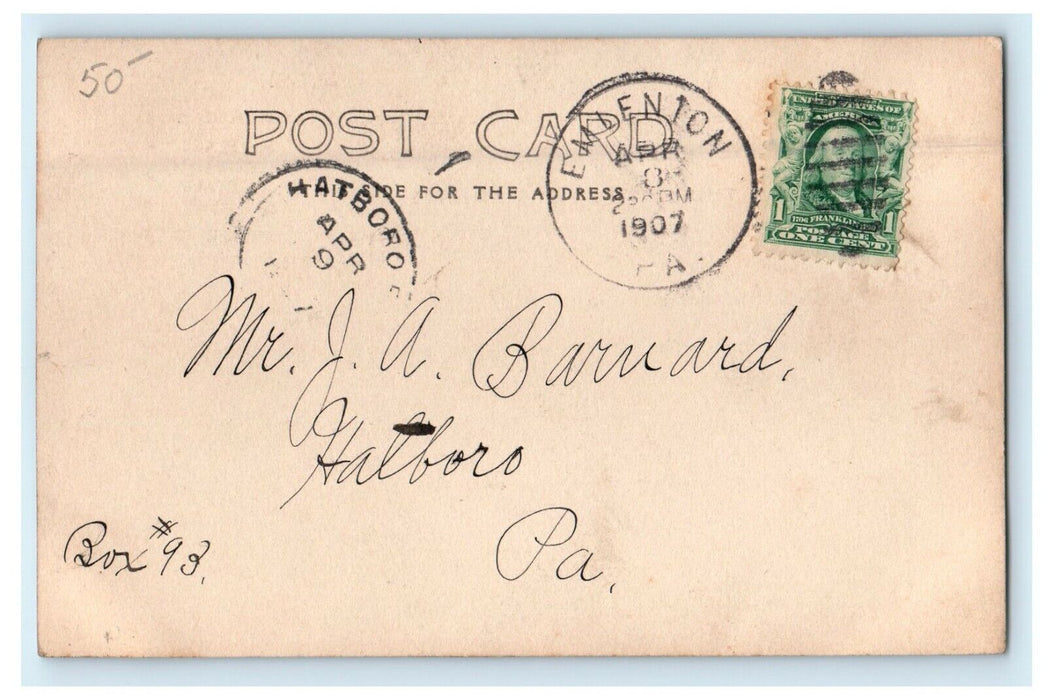 50-
POST CARD
THIS SIDE FOR THE ADDRESS
EMLENTON
APR
8
PM
1907
PA.
UNITED STATES OF
AMERICA
1 FRANKLIN 1
POSTAGE
ONE CENT
HATBORO
APR
9
Mr. J. A. Barnard,
Hatboro
Pa,
Box #93,